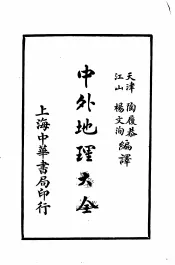 天津 陶履恭
江山 楊文洵 編譯
中外地理大全
上海中華書局印行